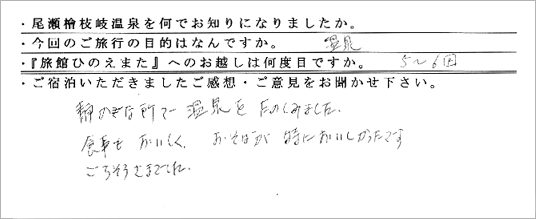 ・尾瀬檜枝岐温泉を何でお知りになりましたか。
・今回のご旅行の目的はなんですか。 温泉
・『旅館ひのえまた』へのお越しは何度目ですか。 5〜6回
・ご宿泊いただきましたご感想・ご意見をお聞かせ下さい。
静かな所で 温泉を たのしみました。
食事も おいしく、おそばが 特においしかったです
ごちそうさまでした。